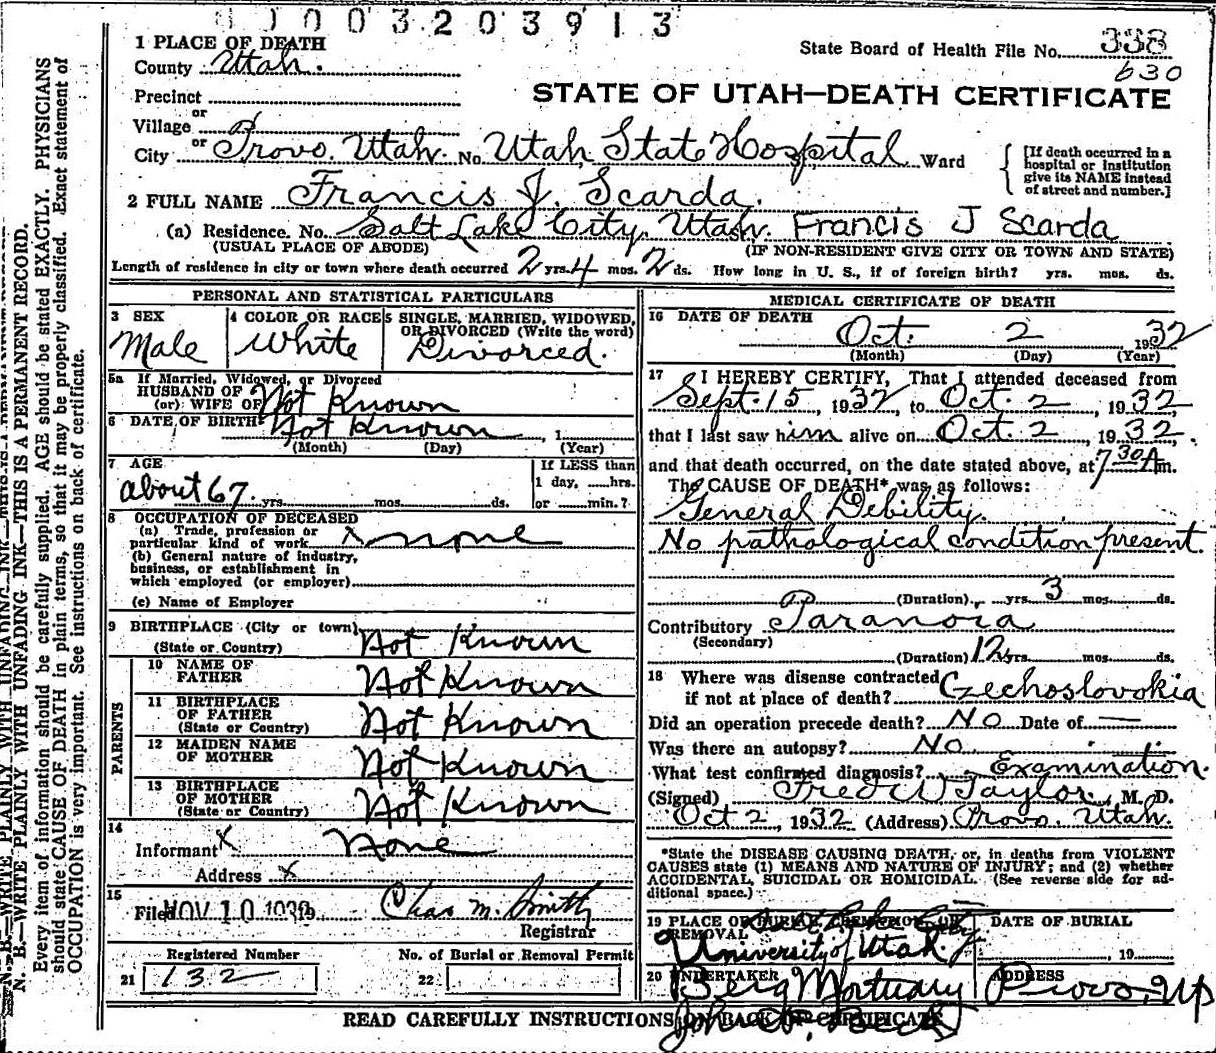 0003203913
1 PLACE OF DEATH
County Utah.
State Board of Health File No. 338
630
Precinct
STATE OF UTAH—DEATH CERTIFICATE
or
Village
or
City Provo, Utah. No. Utah State Hospital Ward
[If death occurred in a hospital or institution give its NAME instead of street and number.]
2 FULL NAME Francis J. Scarda.
(a) Residence. No. Salt Lake City, Utah. Francis J Scarda
(USUAL PLACE OF ABODE) (IF NON-RESIDENT GIVE CITY OR TOWN AND STATE)
Length of residence in city or town where death occurred 2 yrs. 4 mos. 2 ds. How long in U. S., if of foreign birth? yrs. mos. ds.
PERSONAL AND STATISTICAL PARTICULARS
3 SEX
Male
4 COLOR OR RACE
White
5 SINGLE, MARRIED, WIDOWED, OR DIVORCED (Write the word)
Divorced.
5a If Married, Widowed, or Divorced
HUSBAND OF
(or) WIFE OF Not Known
6 DATE OF BIRTH Not Known, 1
(Month) (Day) (Year)
7 AGE
about 67 yrs. mos. ds.
If LESS than
1 day, hrs.
or min.?
8 OCCUPATION OF DECEASED
(a) Trade, profession or
particular kind of work x none
(b) General nature of industry,
business, or establishment in
which employed (or employer)
(c) Name of Employer
9 BIRTHPLACE (City or town)
(State or Country) Not Known
PARENTS
10 NAME OF
FATHER Not Known
11 BIRTHPLACE
OF FATHER
(State or Country) Not Known
12 MAIDEN NAME
OF MOTHER Not Known
13 BIRTHPLACE
OF MOTHER
(State or Country) Not Known
14
Informant x None
Address x
15
Filed NOV 10 Chas M. Smith
Registrar
Registered Number No. of Burial or Removal Permit
21 132 22
MEDICAL CERTIFICATE OF DEATH
16 DATE OF DEATH
Oct. 2 1932
(Month) (Day) (Year)
17 I HEREBY CERTIFY, That I attended deceased from
Sept. 15, 1932, to Oct. 2, 1932
that I last saw him alive on Oct. 2, 1932.
and that death occurred, on the date stated above, at 7 30 A m.
The CAUSE OF DEATH* was as follows:
General Debility.
No pathological condition present.
(Duration) yrs. 3 mos. ds.
Contributory Paranoia
(Secondary)
(Duration) 12 yrs. mos. ds.
18 Where was disease contracted
if not at place of death? Czechoslovokia
Did an operation precede death? No Date of —
Was there an autopsy? No.
What test confirmed diagnosis? Examination.
(Signed) Fred W Taylor, M. D.
Oct 2, 1932 (Address) Provo, Utah.
*State the DISEASE CAUSING DEATH, or, in deaths from VIOLENT
CAUSES state (1) MEANS AND NATURE OF INJURY; and (2) whether
ACCIDENTAL, SUICIDAL OR HOMICIDAL. (See reverse side for ad-
ditional space.)
19 PLACE OF BURIAL, CREMATION, OR
REMOVAL Salt Lake City
University of Utah.
DATE OF BURIAL
, 19
20 UNDERTAKER
Berg Mortuary
ADDRESS
Provo, Up
READ CAREFULLY INSTRUCTIONS ON BACK OF CERTIFICATE
N. B.—WRITE PLAINLY WITH UNFADING INK—THIS IS A PERMANENT RECORD.
Every item of information should be carefully supplied. AGE should be stated EXACTLY. PHYSICIANS
should state CAUSE OF DEATH in plain terms, so that it may be properly classified. Exact statement of
OCCUPATION is very important. See instructions on back of certificate.